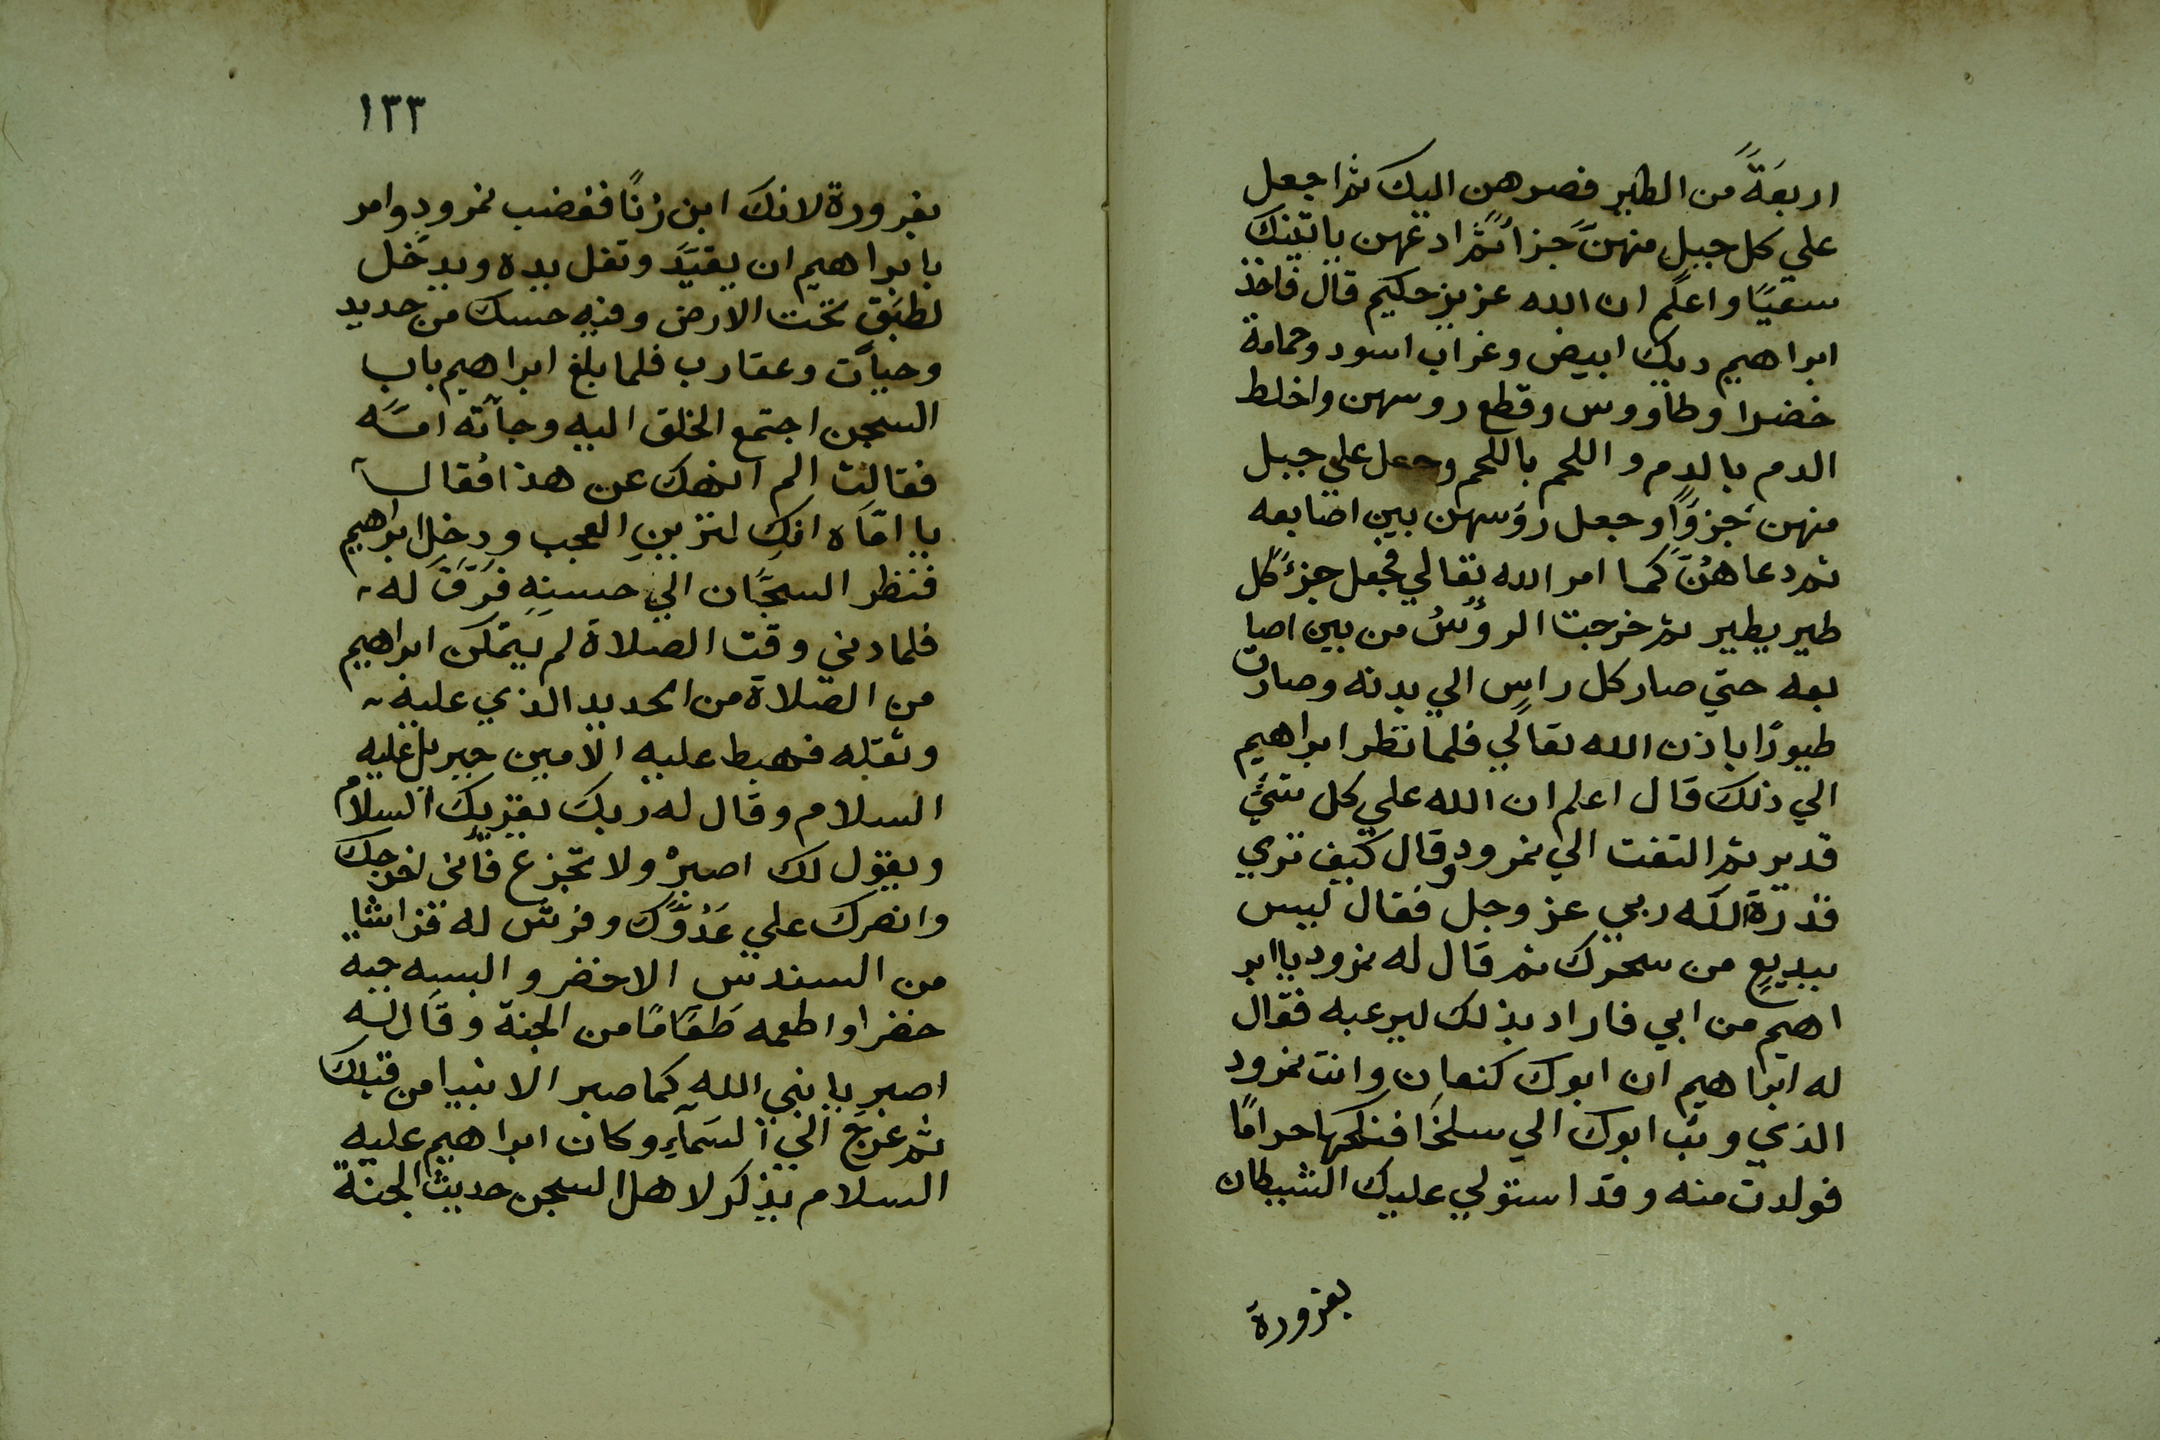 اربعَةً من الطير فصرهن اليك ثم اجعل
علي كل جبل منهنَّ جزأً ثم ادعهن ياتينك
سعيًا واعلم ان الله عزيز حكيم قال فاخذ
ابراهيم ديك ابيض وغراب اسود وحمامة
خضرا وطاووس وقطع روسهن واخلط
الدم بالدم واللحم باللحم وجعل علي جبل
منهن جزوًا وجعل رؤسهن بين اصابعه
ثم دعاهُنَّ كما امر الله تعالي فجعل جزء كل
طير يطير ثم خرجت الرؤُسُ من بين اصا
بعه حتي صار كل راسٍ الي بدنه وصارت
طيورًا باذن الله تعالي فلما نظر ابراهيم
الي ذلك قال اعلم ان الله علي كل شيْ
قدير ثم التفت الي نمرود وقال كيف تري
قدرة الله ربي عز وجل فقال ليس
ببديعٍ من سحرك ثم قال له نمرود يا ابر
اهيم من ابي فاراد بذلك ليرعبه فقال
له ابراهيم ان ابوك كنعان وانت نمرود
الذي وثب ابوك الي سلخا فنكحها حرامًا
فولدت منه وقد استولي عليك الشيطان
بغرورة
١٣٣
بغرورة لانك ابن زنًا فغضب نمرود وامر
بابراهيم ان يقيَّدَ وتغل يده ويدخل
لطبق تحت الارض وفيه حسك من حديد
وحيات وعقارب فلما بلغ ابراهيم باب
السجن اجتمع الخلق اليه وجآته امّه
فقالت الم انهك عن هذا فقال
يا امّاه انكِ لتزينِ العجب ودخل ابراهيم
فنظر السجَّان الي حسنِهِ فَرَقَّ له
فلما دني وقت الصلاة لم يتمكن ابراهيم
من الصلاة من الحديد الذي عليه
وثقله فهبط عليه الامين جبريل عليه
السلام وقال له ربك يقريك السلام
ويقول لك اصبرْ ولا تجزع فأني لفرجك
وانصرك علي عَدُوَّك وفرش له فراشا
من السندس الاخضر والبسه جبه
خضرا واطعمه طعَامًا من الجنة وقال له
اصبر يا نبي الله كما صبر الانبيا من قبلك
ثم عرج الي السَمآءِ وكان ابراهيم عليه
السلام يذكر لاهل السجن حديث الجنة